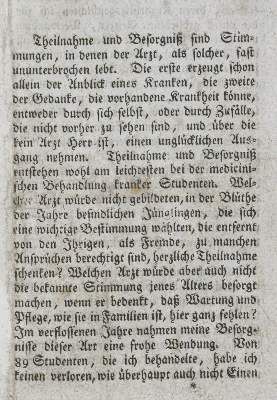 Theilnahme und Besorgniß sind Stim-
mungen, in denen der Arzt, als solcher, fast
ununterbrochen lebt. Die erste erzeugt schon
allein der Anblick eines Kranken, die zweite
der Gedanke, die vorhandene Krankheit könne,
entweder durch sich selbst, oder durch Zufälle,
die nicht vorher zu sehen sind, und über die
kein Arzt Herr ist, einen unglücklichen Aus-
gang nehmen. Theilnahme und Besorgniß
entstehen wohl am leichtesten bei der medicini-
schen Behandlung kranker Studenten. Wel-
cher Arzt würde nicht gebildeten, in der Blüthe
der Jahre befindlichen Jünglingen, die sich
eine wichtige Bestimmung wählten, die entfernt
von den Ihrigen, als Fremde, zu manchen
Ansprüchen berechtigt sind, herzliche Theilnahme
schenken? Welchen Arzt würde aber auch nicht
die bekannte Stimmung jenes Alters besorgt
machen, wenn er bedenkt, daß Wartung und
Pflege, wie sie in Familien ist, hier ganz fehlen?
Im verflossenen Jahre nahmen meine Besorg-
nisse dieser Art eine frohe Wendung. Von
89 Studenten, die ich behandelte, habe ich
keinen verloren, wie überhaupt auch nicht Einen